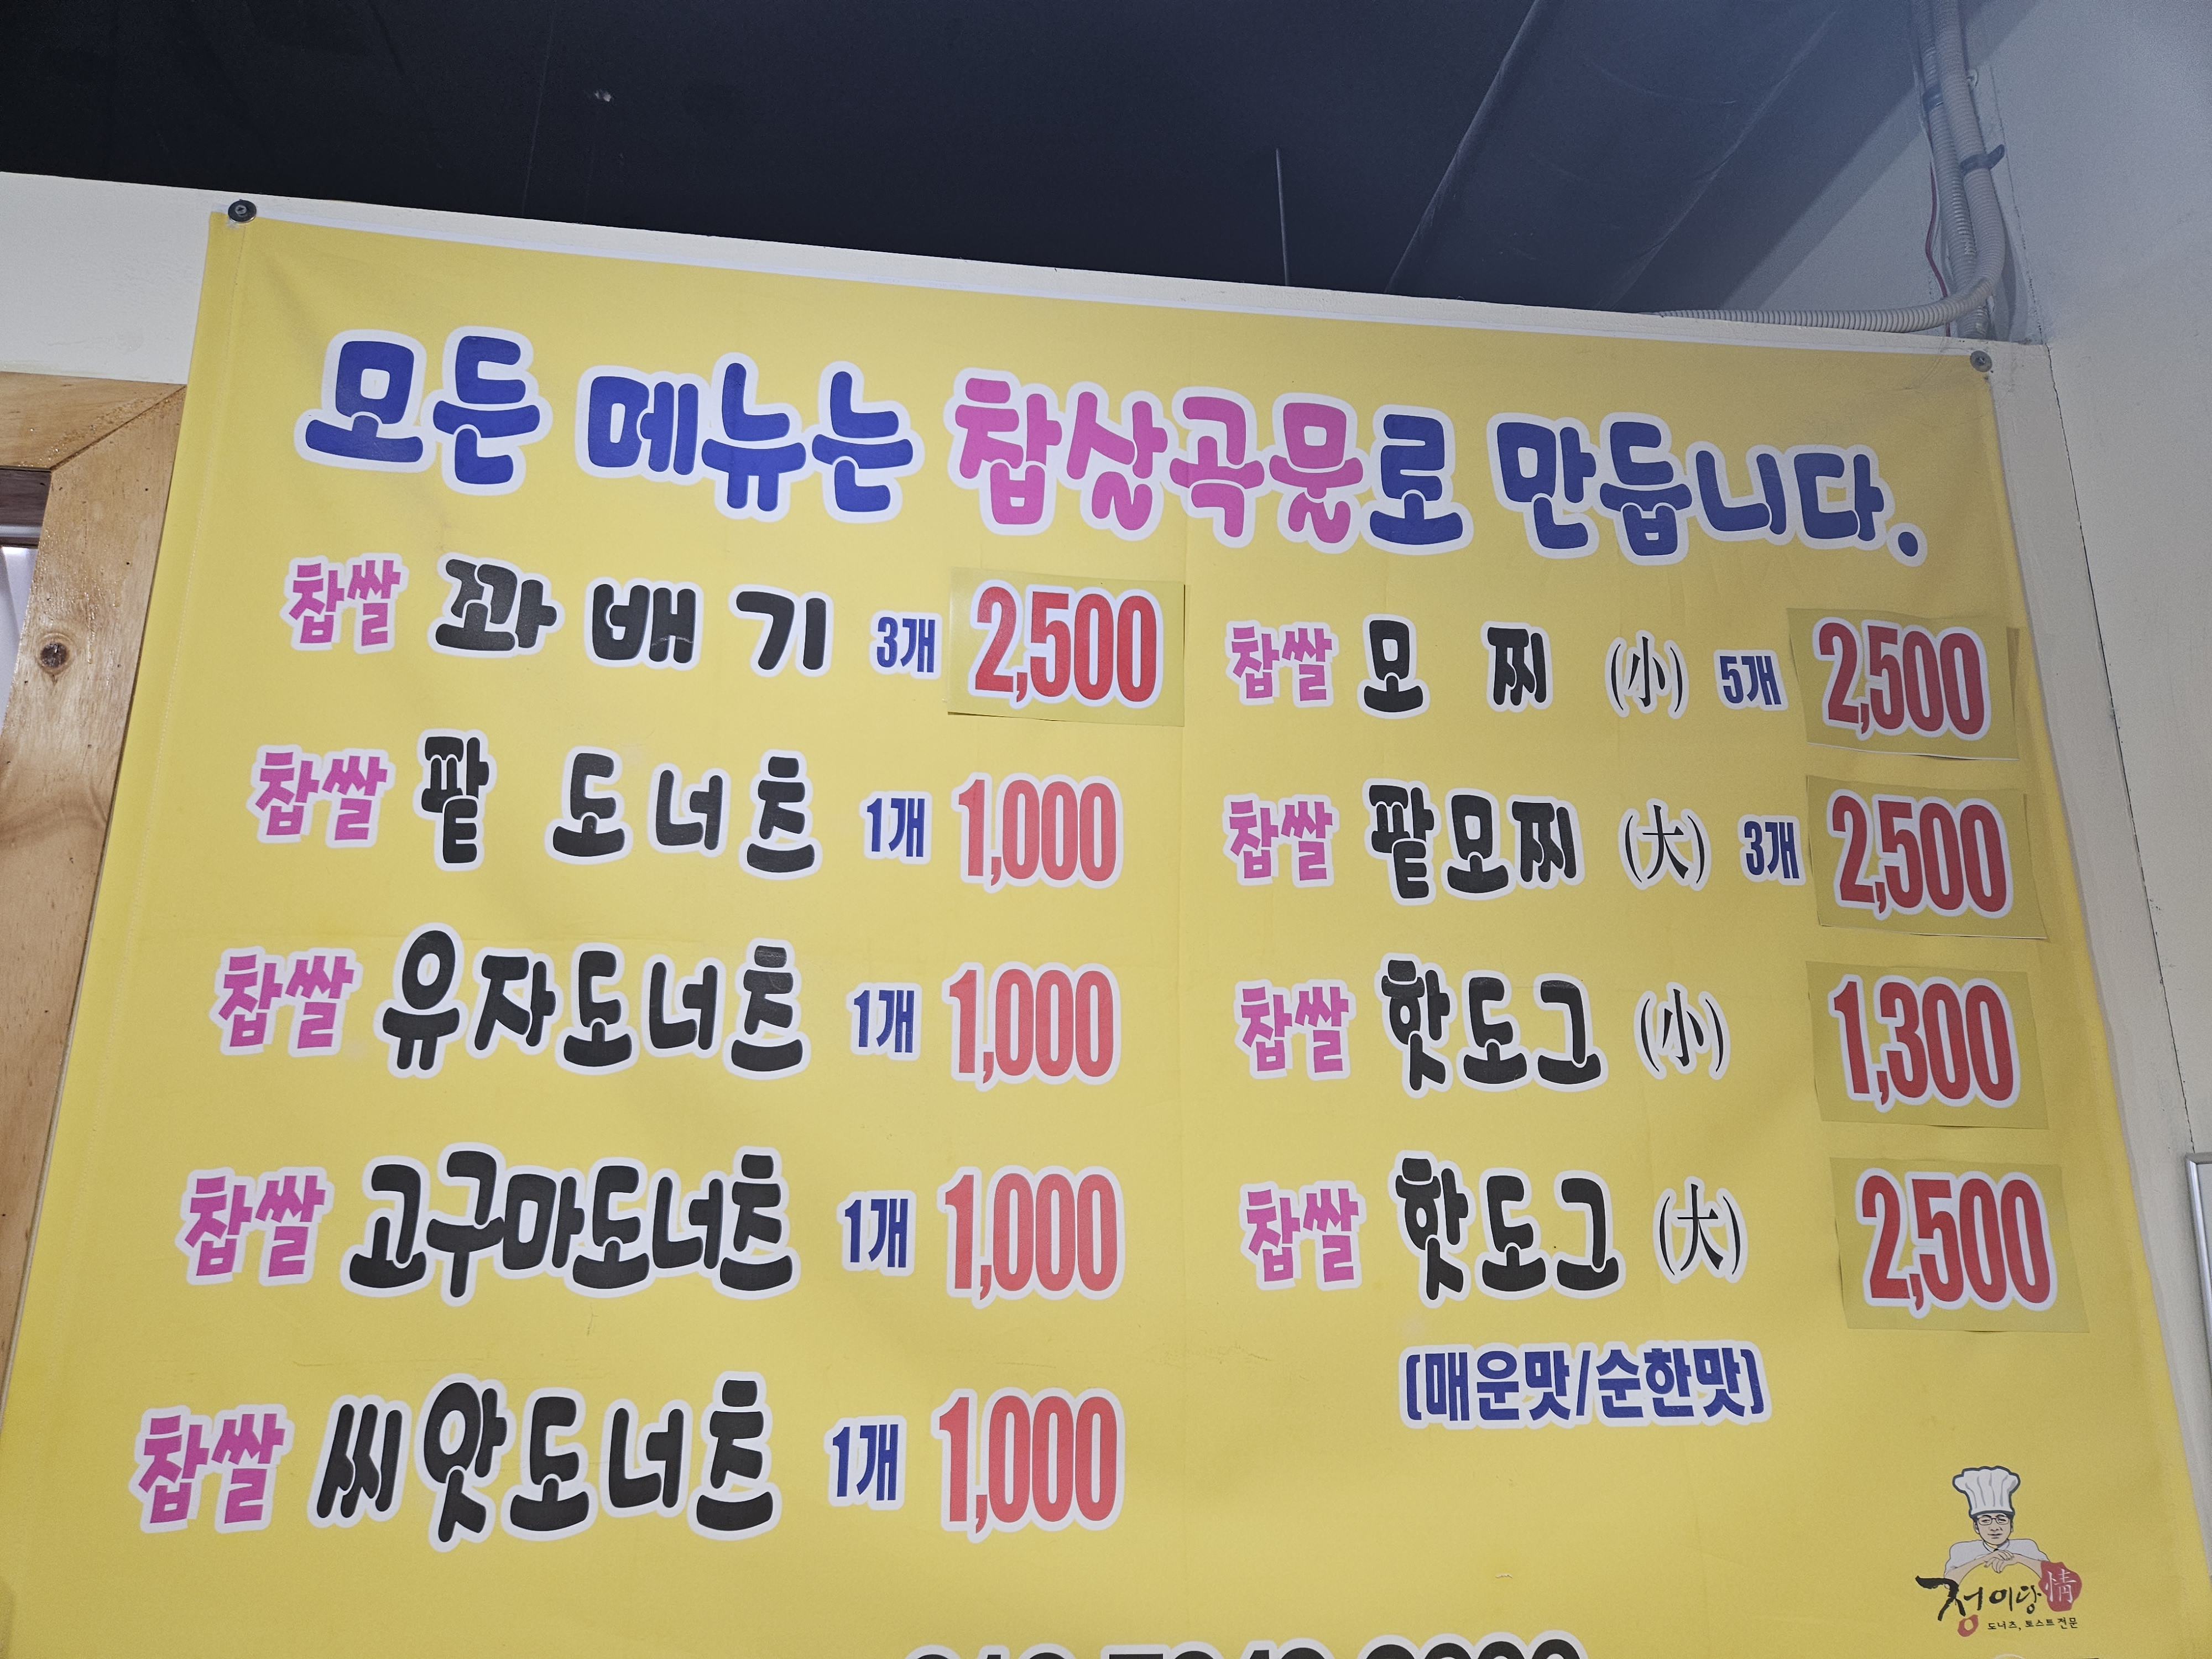 모든 메뉴는 찹살곡물로 만듭니다.
찹쌀 꽈배기 3개 2,500
찹쌀 팥 도너츠 1개 1,000
찹쌀 유자도너츠 1개 1,000
찹쌀 고구마도너츠 1개 1,000
찹쌀 씨앗도너츠 1개 1,000
찹쌀 모 찌 (小) 5개 2,500
찹쌀 팥모찌 (大) 3개 2,500
찹쌀 핫도그 (小) 1,300
찹쌀 핫도그 (大) 2,500
(매운맛/순한맛)
정이당 情
도너츠, 토스트 전문